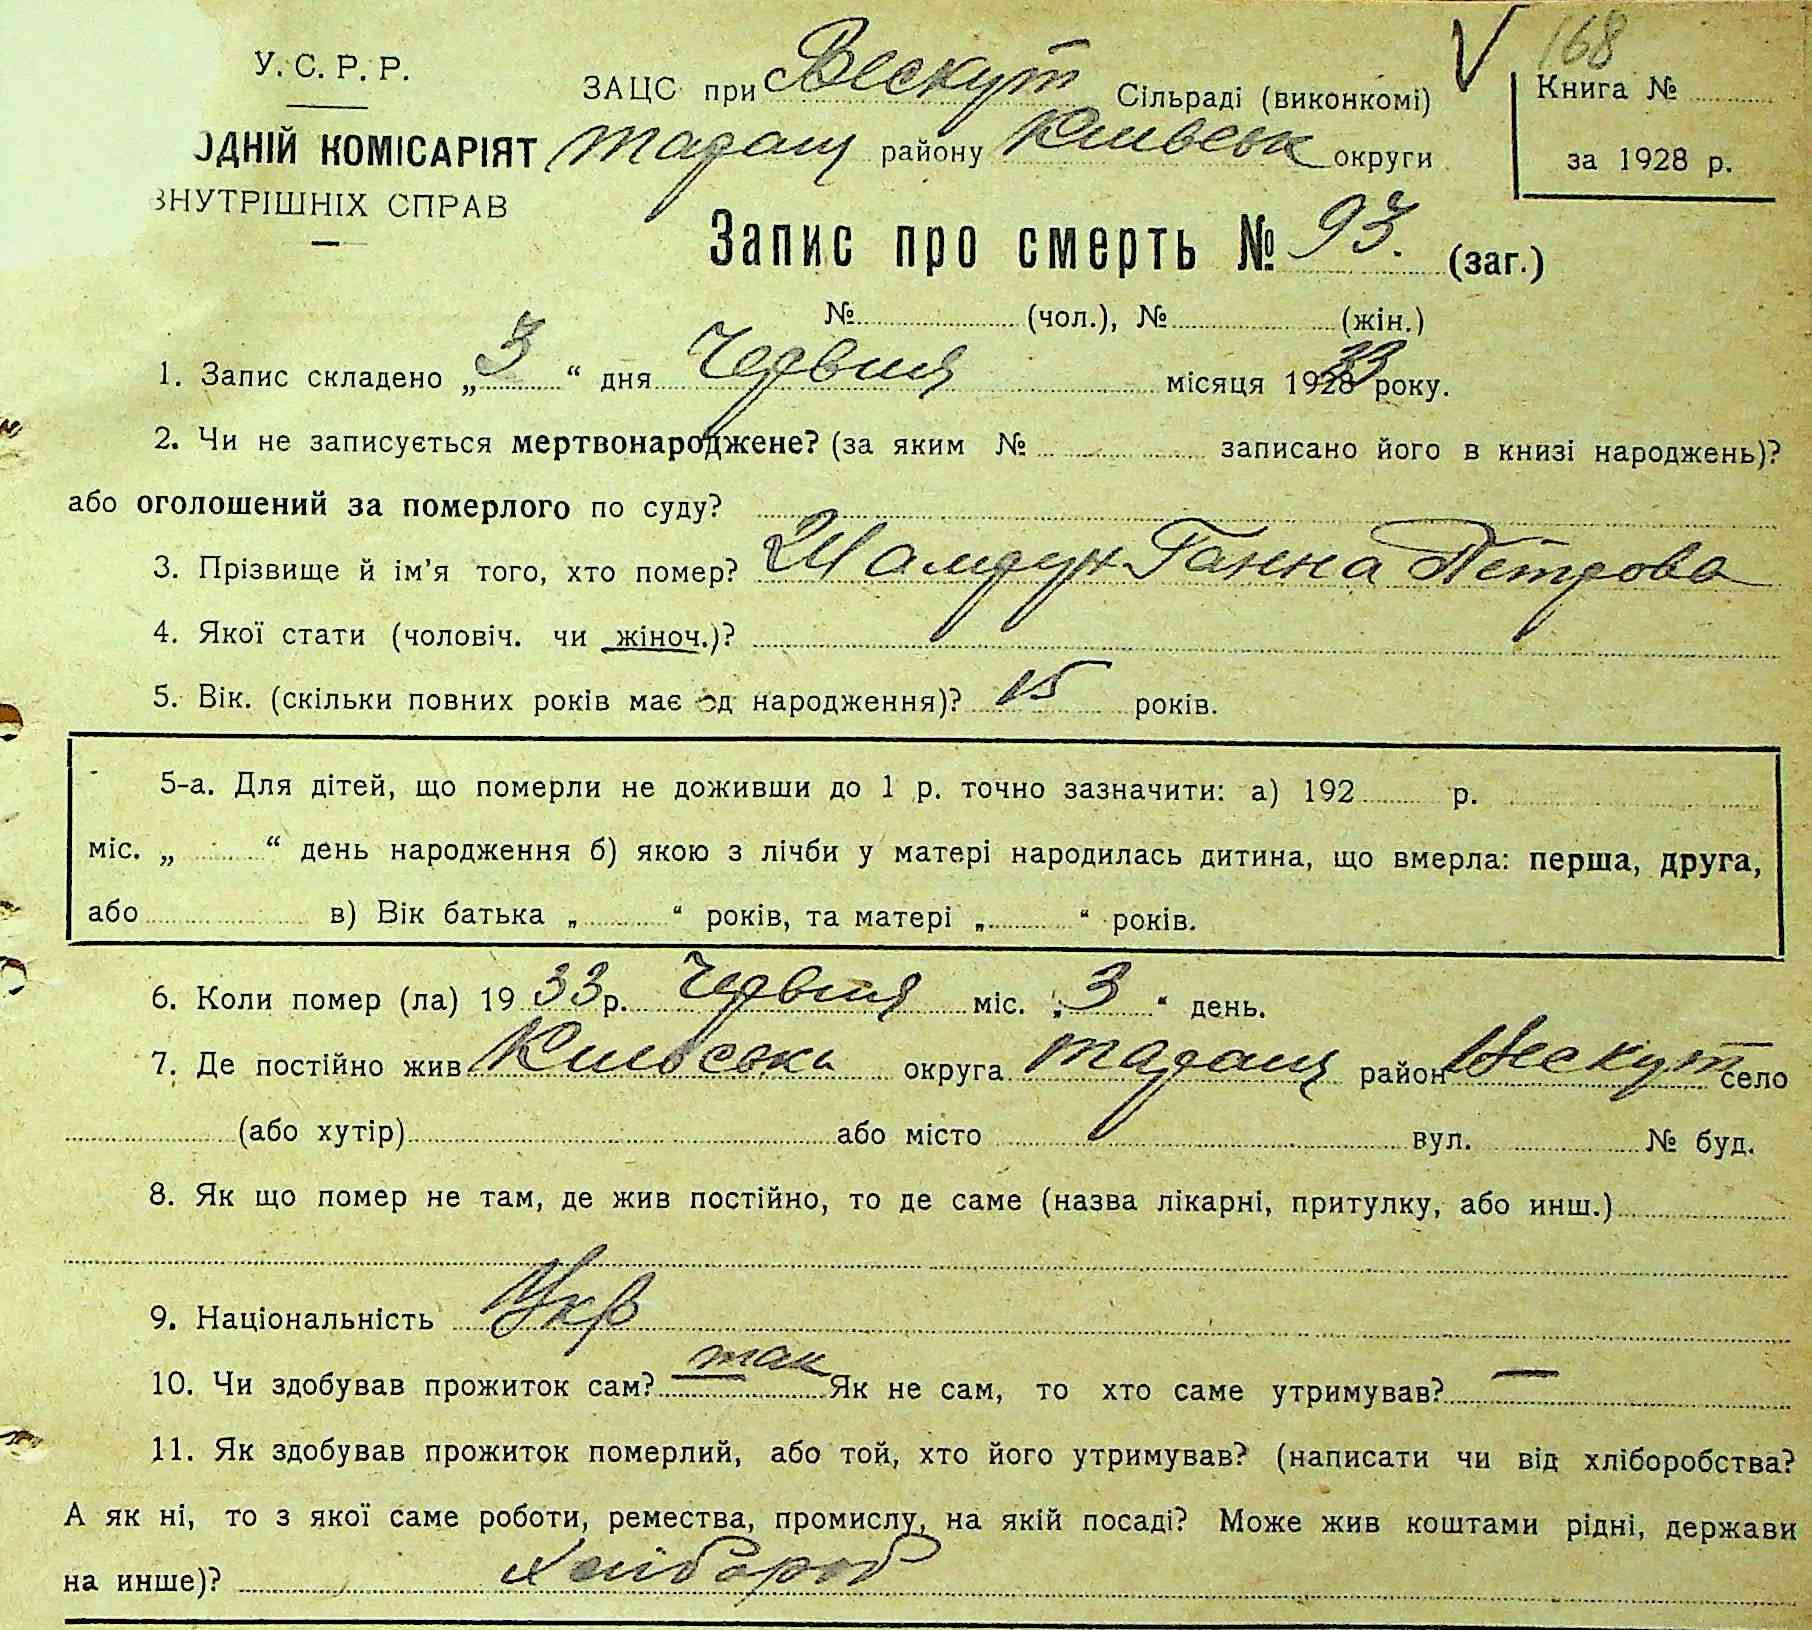 168
У. С. Р. Р.
ЗАЦС при Вескут Сільраді (виконкомі)
Книга №
ОДНІЙ КОМІСАРІЯТ Таращ району Київськ округи
за 1928 р.
ВНУТРІШНІХ СПРАВ
Запис про смерть № 93. (заг.)
№ (чол.), № (жін.)
1. Запис складено „ 3 “ дня Червня місяця 1933 року.
2. Чи не записується мертвонароджене? (за яким № записано його в книзі народжень)?
або оголошений за померлого по суду?
3. Прізвище й ім'я того, хто помер? Шамдук Ганна Петрова
4. Якої стати (чоловіч. чи жіноч.)?
5. Вік. (скільки повних років має од народження)? 15 років.
5-а. Для дітей, що померли не доживши до 1 р. точно зазначити: а) 192 р.
міс. „ “ день народження б) якою з лічби у матері народилась дитина, що вмерла: перша, друга,
або в) Вік батька „ “ років, та матері „ “ років.
6. Коли помер (ла) 19 33 р. Червня міс. „ 3 “ день.
7. Де постійно жив Київська округа Таращ район Вескут село
(або хутір) або місто вул. № буд.
8. Як що помер не там, де жив постійно, то де саме (назва лікарні, притулку, або инш.)
9. Національність Укр
10. Чи здобував прожиток сам? так Як не сам, то хто саме утримував? —
11. Як здобував прожиток померлий, або той, хто його утримував? (написати чи від хліборобства?
А як ні, то з якої саме роботи, ремества, промислу, на якій посаді? Може жив коштами рідні, держави
на инше)? Хлібороб